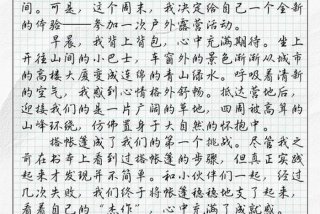 间。可是,这个周末,我决定给自己一个全新
的体验——参加一次户外露营活动。
早晨,我背上背包,心中充满期待。坐上
开往山间的小巴士,车窗外的景色渐渐从城市
的高楼大厦变成连绵的青山绿水。呼吸着清新
的空气,我感到心情格外舒畅。抵达营地后,
迎接我们的是一片广阔的草地,四周被高耸的
山峰环绕,仿佛置身于大自然的怀抱中。
搭帐篷成了我们的第一个挑战。尽管我之
前在书本上看到过搭帐篷的步骤,但真正实践
起来才发现并不简单。和小伙伴们一起,经过
几次失败,我们终于将帐篷稳稳地支了起来,
看着自己的“杰作”,心中充满了成就感。